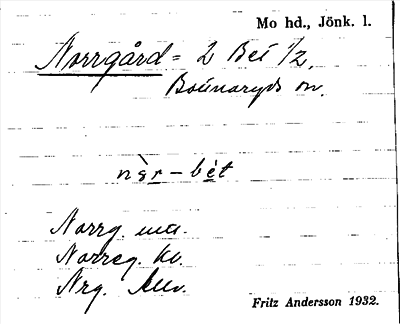 Mo hd., Jönk. l.
Norrgård = 2 Bet 1/2,
Bounaryds sn.
nèr – bét
Norrg. ma.
Norreg. kv.
Nrg.
Fritz Andersson 1932.